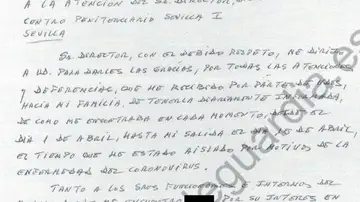 A LA ATENCIÓN DEL SR. DIRECTOR,
CENTRO PENITENCIARIO SEVILLA I
SEVILLA
SR. DIRECTOR, CON EL DEBIDO RESPETO, ME DIRIJO
A UD. PARA DARLES LAS GRACIAS, POR TODAS LAS ATENCIONES
Y DEFERENCIAS, QUE HE RECIBIDO POR PARTE DE UDS,
HACIA MI FAMILIA, DE TENERLA DIARIAMENTE INFORMADA,
DE COMO ME ENCONTRABA EN CADA MOMENTO, DESDE EL
DIA 1 DE ABRIL, HASTA MI SALIDA EL DIA DE ABRIL,
EL TIEMPO QUE HE ESTADO AISLADO POR MOTIVOS DE LA
ENFERMEDAD DEL CORONAVIRUS.
TANTO A LOS SRES FUNCIONARIOS E INTERNOS DEL
POR SU INTERES EN
teguardia.es